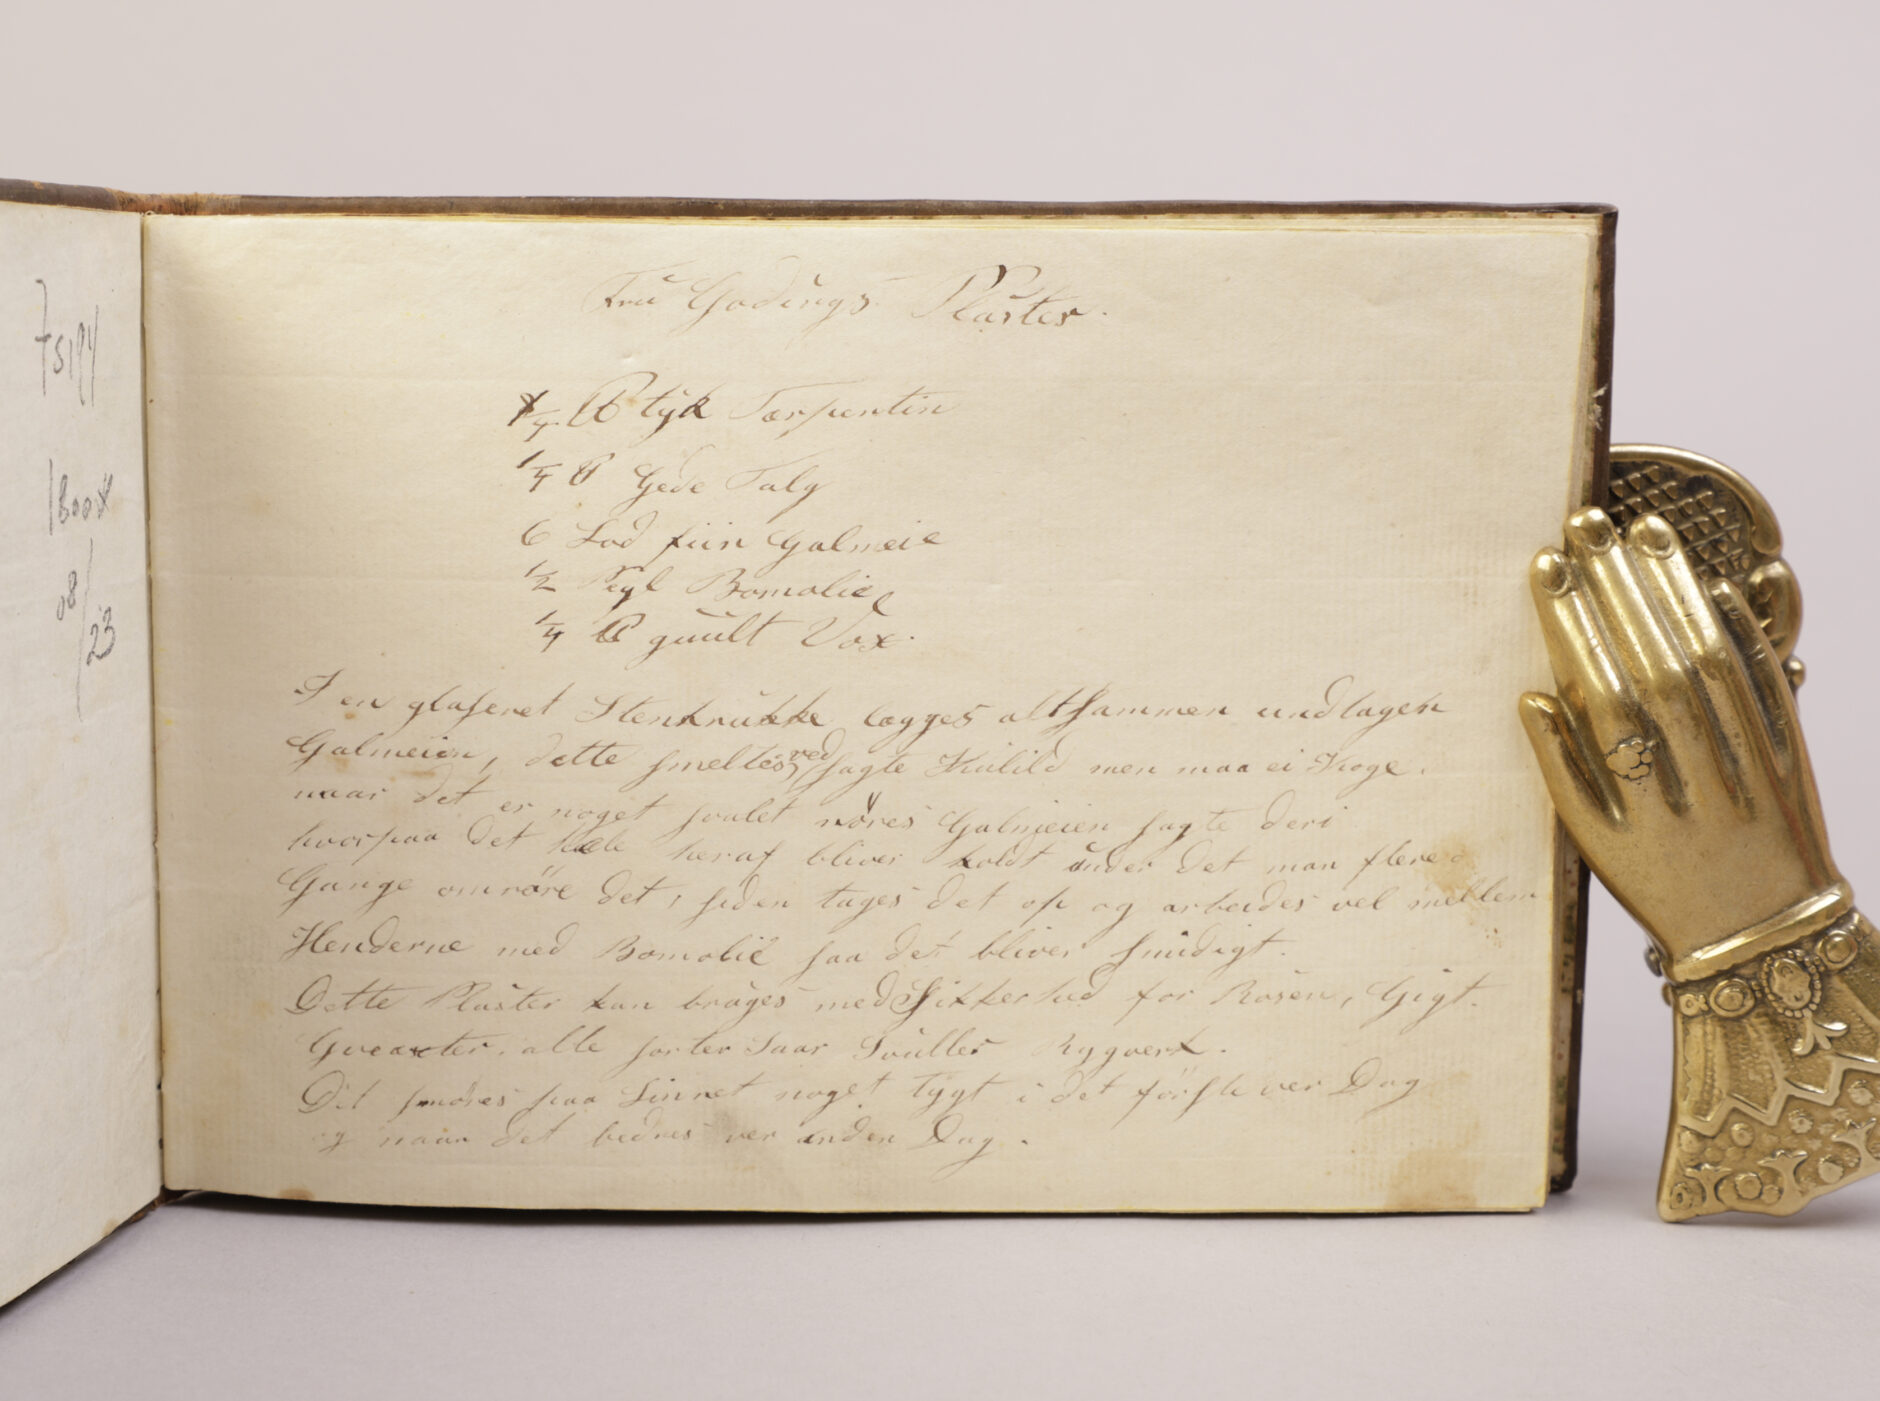 Fru Godings Plaster.
1/4 ℔ tyk Tærpentin
1/4 ℔ Gede Talg
6 Lod fiin Galmeie
1/2 Pegl Bomolie
1/4 ℔ guult Vox.
I en glaseret Stenkrukke lægges altsammen undtagen
Galmeien, dette smeltes ved sagte Kulild men maa ei Koge.
naar det er noget svalet röres Galmeien sagte deri
hvorpaa det hele heraf bliver koldt under det man flere
Gange omröre det, siden tages det op og arbeides vel mellem
Henderne med Bomolie saa det bliver smidigt.
Dette Plaster kan bruges med Sikkerhed for Rosen, Gigt.
alle sorter Saar Suller Rygverk.
Det smöres paa Linnet noget tygt i det förste ver Dag
og naar det bedres ver anden Dag.